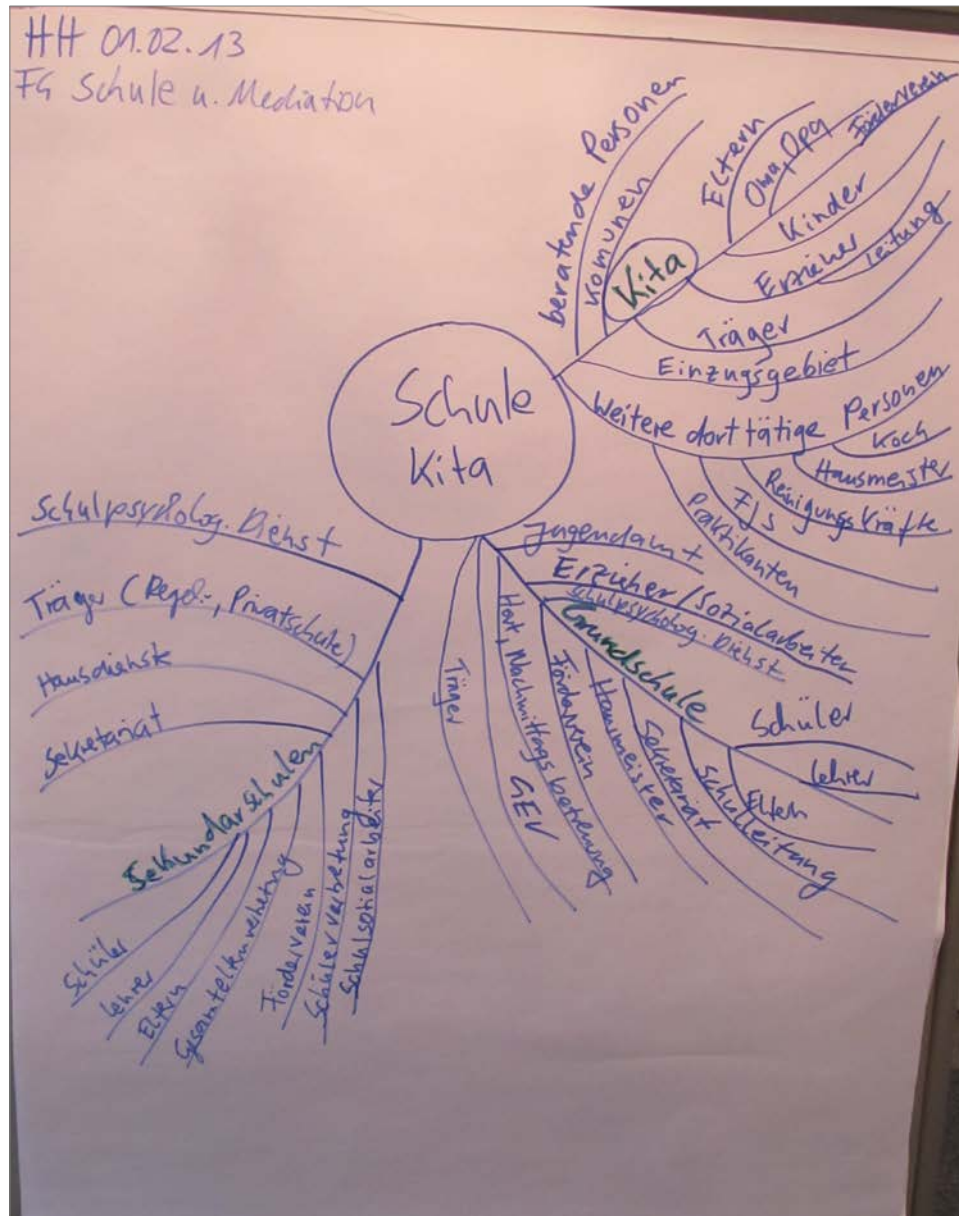 HH 01.02.13
FG Schule u. Mediation
Schule
Kita
beratende Personen
Komunen
Kita
Eltern
Oma, Opa
Förderverein
Kinder
Erzieher
Leitung
Träger
Einzugsgebiet
Weitere dort tätige Personen
Koch
Hausmeister
Reinigungskräfte
FJS
Praktikanten
Jugendamt
Erzieher/Sozialarbeiter
Schulpsycholog. Dienst
Grundschule
Schüler
Lehrer
Eltern
Schulleitung
Sekretariat
Hausmeister
Förderverein
Hort, Nachmittagsbetreuung
GEV
Träger
Schulpsycholog. Dienst
Träger (Regel-, Privatschule)
Hausdienste
Sekretariat
Sekundarschulen
Schüler
Lehrer
Eltern
Gesamtelternvertretung
Förderverein
Schülervertretung
Schulsozialarbeiter